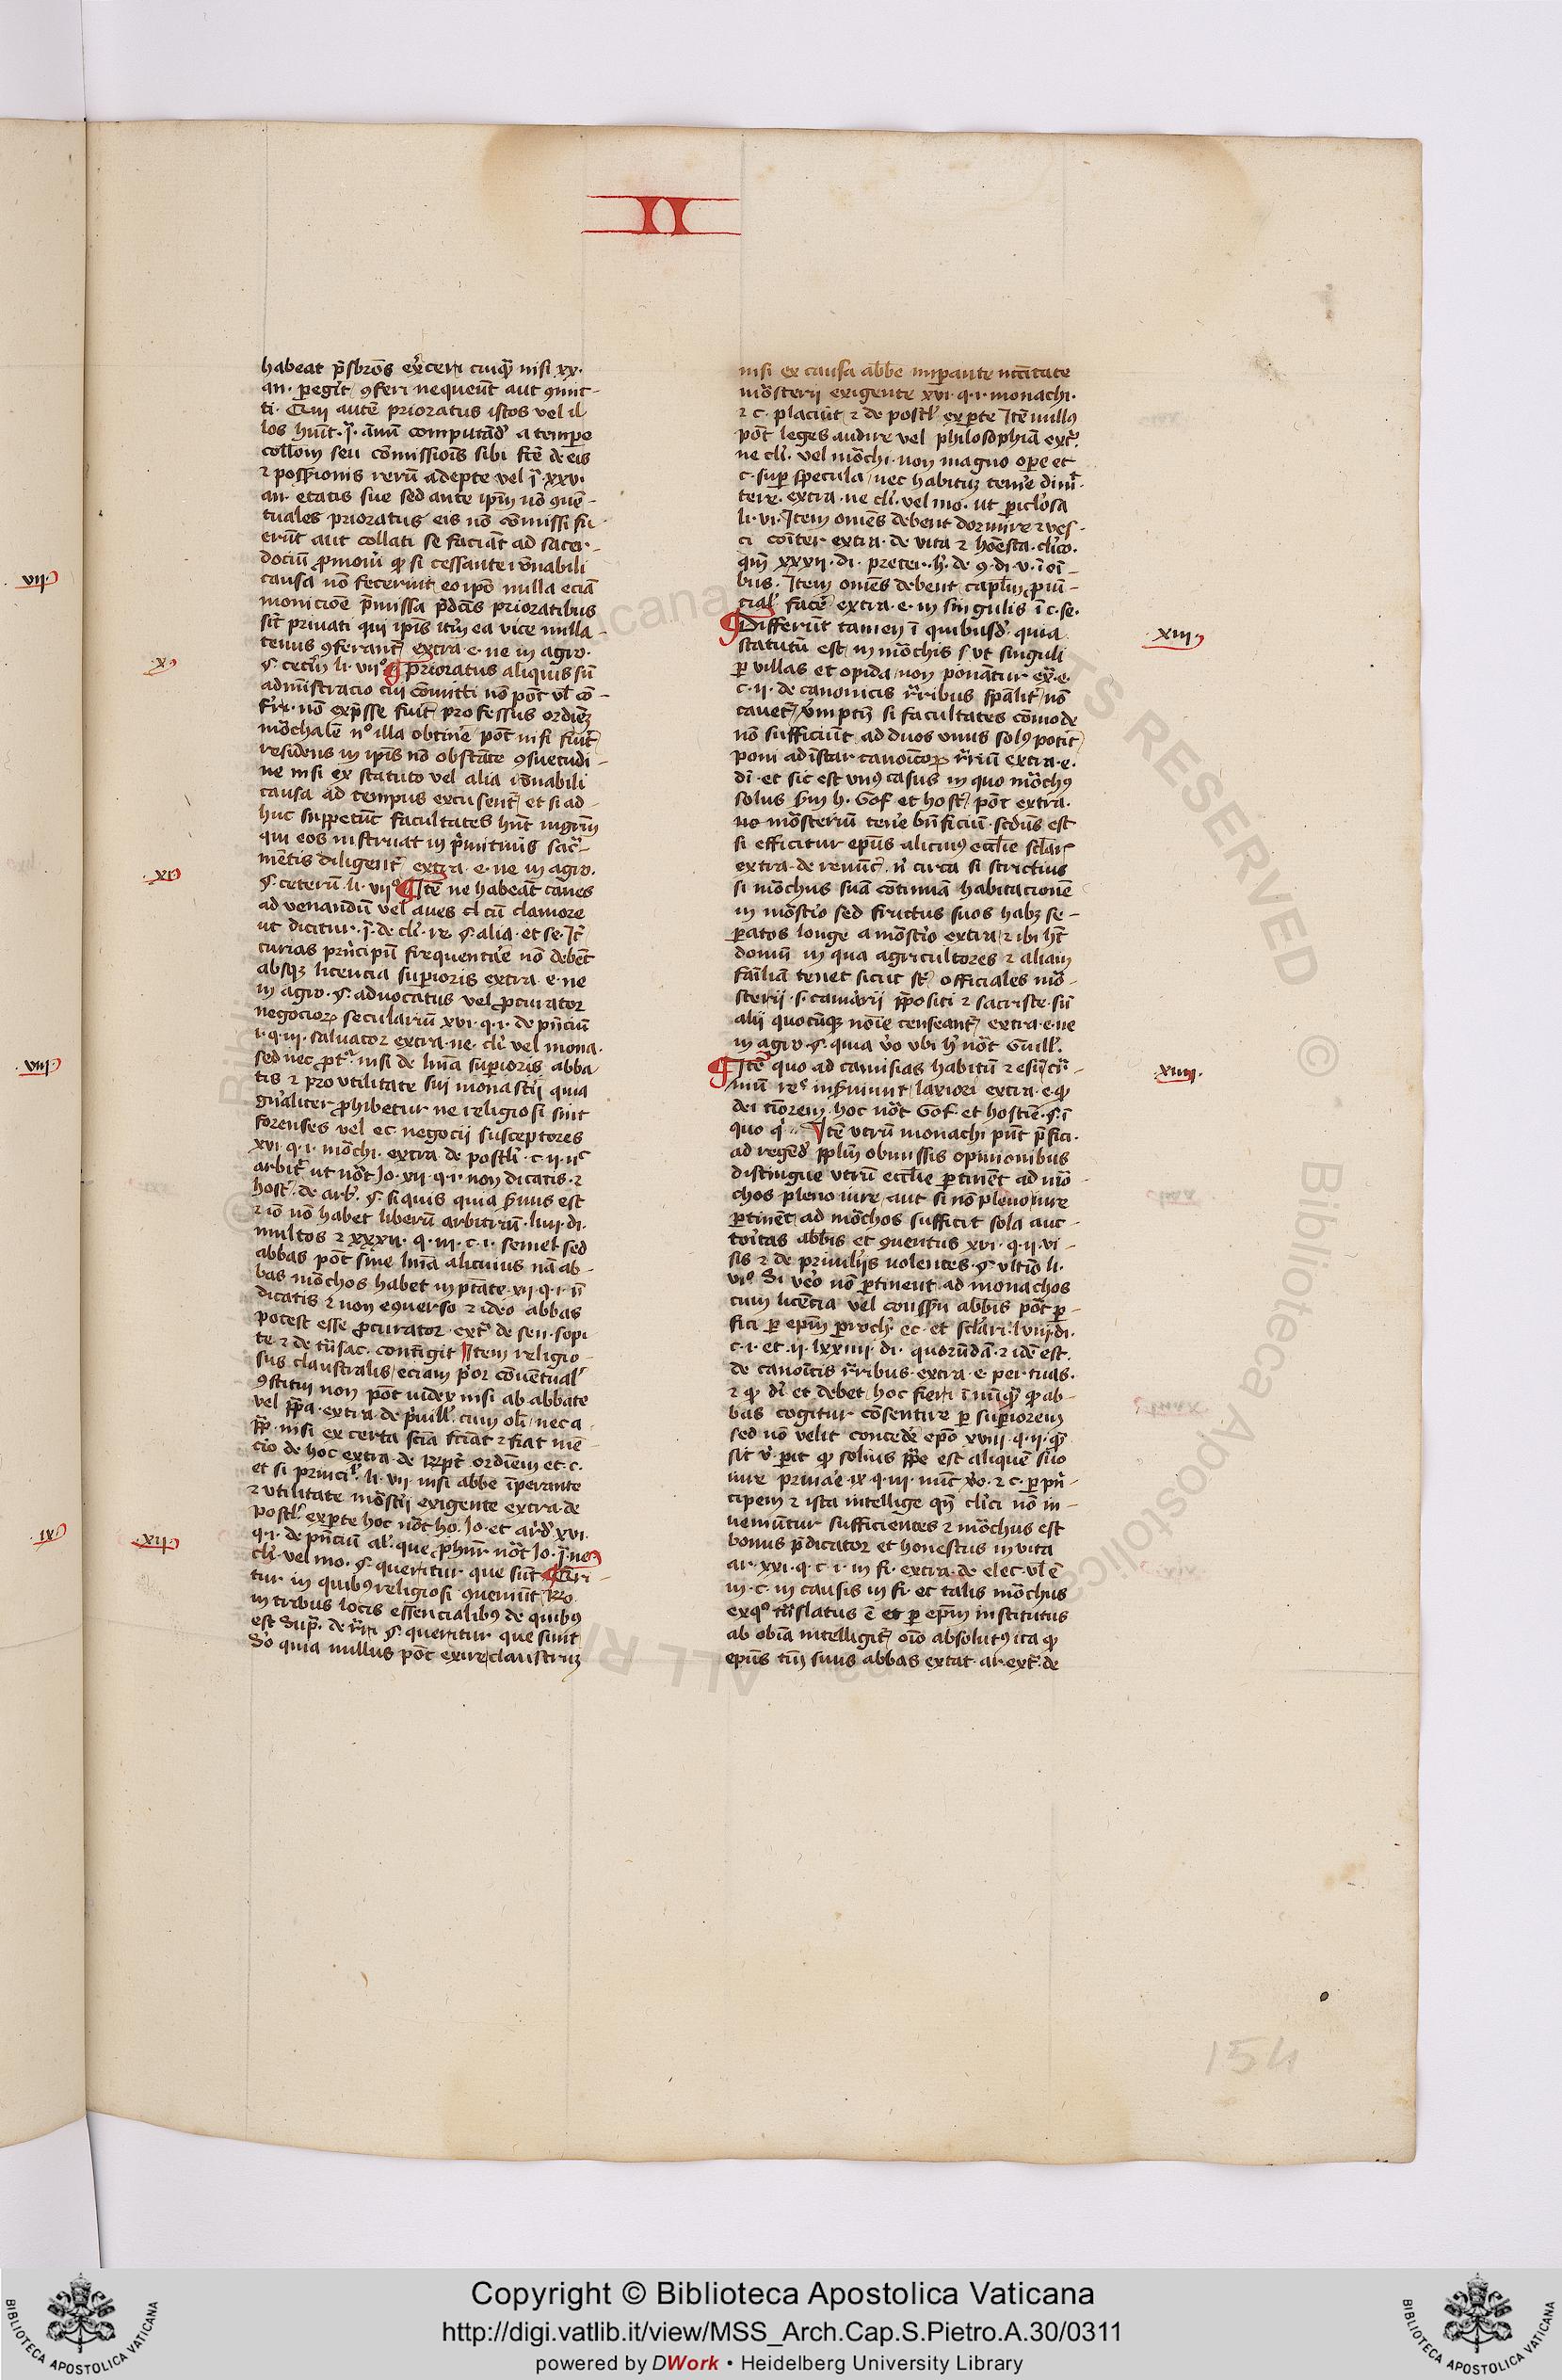 II
habeat p̄sbr̄os exc̄eri cuiq̄ȝ nisi xx·
an· ꝑegit ꝯferi nequeūt aut ꝯmit-
ti· Qui autē prioratus istos vel il
los hn̄t· ī· annū computād̄ a tempe
coll̄om̄ seu cōmissiōis sibi fc̄e de eis
⁊ possessionis rerū adepte vel ī· xxv·
an· etatis sue sed ante ip̄m nō ꝯuē-
tuales prioratus eis nō cōmissi fu
erūt aut collati se faciāt ad sacer-
dociū ꝓmoueri qd̄ si cessante rōnabili
causa nō fecerint eo ip̄o nulla eciā
monicioē p̄missa p̄dcīs prioratibus
sīt priuati qui ip̄is itm̄ ea vice nulla-
tenus ꝯferant᷑ extra· e· ne in agro·
§· cetm̄ li· vii° ¶ Prioratus aliquis sū
adm̄istracio cui cōmitti nō pōt vl̄ cō-
nō exp̄sse fuit professus ordiēȝ
mōchalē n° illa obtine᷑ pōt nisi fiūt
residens in ip̄is nō obstāte ꝯsuetudi-
ne nisi ex statuto vel alia rōnabili
causa ad tempus excusent᷑ et si ad-
huc suppetūt facultates hn̄t mgr̄m
qui eos instruat in p̄mitiuis sac̄-
mētis diligent᷑ extra· e· ne in agro·
§· ceterū· li· vii° ¶ Itē ne habeāt canes
ad venandū vel aues cl cū clamore
ut dicitur· ī· de cl̄i· re §· alia· et se· It̄
curias principū frequentare nō debēt
absqȝ licencia suꝑioris extra· e· ne
in agro· §· aduocatus vel ꝓcurator
negocioꝝ seculariū xvi· q· i· de p̄nciū
i· q· iii· saluator extra· ne· cl̄i· vel mona·
sed nec nisi de lnīa suꝑioris abba
tis ⁊ pro vtilitate sui monastii quia
gn̄aliter ꝓhibetur ne religiosi sint
forenses vel ec· negocii susceptores
xvi· q· i· mōchi· extra de postl̄i· c· ii· nc̄
arbit᷑ ut nōt Jo· xii· q· i· non dicatis· ⁊
host᷑· de arb᷑· §· si quis quia s̄uus est
⁊ iō nō habet liberū arbitriū· liiii· di·
multos ⁊ xxxii· q· iii· c· i· semel· sed
abbas pōt sine lnīa alicuius nā ab-
bas mōchos habet in ptāte· xii· q· i· n̄
dicatis ⁊ non eꝯuerso ⁊ ideo abbas
potest esse ꝓcurator· ext᷑ de sen· sopi
te ⁊ de tn̄sac· contigit Item religio-
sus claustralis eciam p̄or cōuentual᷑
ꝯstitui non pōt iudex nisi ab abbate
vel pp̄a· extra· de p̄uill᷑· cum ol̄i nec a·
pp̄· nisi ex certa scīa fciāt ⁊ fiat mē-
cio de hoc extra· de Rpt᷑ ordiēm et· c·
et si princi᷑· li· vii· nisi abbe īperante
⁊ vtilitate mōstii exigente extra· de
postl᷑· ex pte hoc nōt ho· Jo· et ard̄· xvi·
q· i· de p̄nciū al᷑· que ꝓhin̄r nōt Jo· ī· ne
cl̄i· vel mo· §· queritur que sūt ¶ Qri-
tur in quibꝯ religiosi ꝯueniūt Ro·
in tribus locis essencialibꝯ de quibꝯ
est Sup̄· de §· queritur que sunt
So quia nullus pōt exire claustrum
nisi ex causa abbe imperante nccitate
mōsterii exigente xvi· q· i· monachi·
⁊ c· placuit ⁊ de postl᷑ ex pte Itē nullꝯ
pōt leges audire vel philosophiā ext᷑·
ne cl̄i· vel mōchi· non magno oꝑe et
c· suꝑ specula nec habitum temere dimi-
tere· extra· ne cl̄i· vel mo· ut ꝑiclosa
li· vi· Item omēs debent dormire ⁊ ves-
ci coīter extra· de vita ⁊ hōesta· clico·
qm̄ xxxii· di· preter· h᷑· de ꝯ· di· v· ī oī-
bus· Item omēs debent capl̄m ꝓuī-
cial᷑ fac̄e extra· e· in singulis ī c· se·
¶ Differūt tamen ī quibusd᷑ quia
statutū est in mōchis s᷑ ut singuli
ꝑ villas et opida non ponātur ex᷑· e·
c· ii· de canonicis r̄ribus sp̄alit᷑ nō
cauet᷑ v̄mptn̄ si facultates cōmode
nō sufficiūt ad duos vnus solꝯ potit᷑
poni ad īstar canōicoꝝ r̄riū extra· e·
di· et sic est vnꝯ casus in quo mōchꝯ
solus s̄m h· Gof· et host᷑ pōt extra·
no mōsterium tene᷑ bn̄ficiū· scd̄us est
si efficitur epūs alicuiꝯ ecclīe scl̄ar᷑
extra· de renūc᷑· n̄ circa si strictius
si mōchus suā cōtinuā habitacionē
in mōstio sed fructus suos habȝ se-
ꝑatos longe a mōstio extra ⁊ ibi hȝ
domū in qua agricultores ⁊ aliam
familiā tenet sicut st᷑ officiales mō-
sterii· s· camarii pp̄ositi ⁊ sacriste· sū
alii quocūqȝ noīe censeant᷑ extra· e· ne
in agro· §· quia vō vbi h᷑ nōt Guill᷑·
¶ Itē quo ad camisias habitū ⁊ esū cī-
nīū laxiori extra· e· qd̄
dei tiorem· hoc nōt Gof· et hostiē· §· ī
quo q· Itē vtrū monachi pn̄t p̄fici·
ad regēd᷑ ppl̄m obmissis opinionibus
distingue vtrū ecclīe ꝑtinēt ad mō-
chos pleno iure aut si nō pleno iure
ꝑtinēt ad mōchos sufficit sola auc-
toitas abbīs et ꝯuentus xvi· q· ii· vi-
sis ⁊ de priuilijs uolentes· §· vltīo li·
vi° Si vero nō ꝑtinent ad monachos
cum licētia vel conssn̄u abbīs pōt ꝑ-
fici ꝑ epm̄ ꝑroch᷑ ec· et scl̄ari· lviii· di·
c· i· et· ii· lxxiiii· di· quorundā· ⁊ idē est·
de canōicis r̄ribus· extra· e· per tuas·
⁊ qd̄ di· et debet hoc fieri ī nūq̄ȝ qd̄ ab-
bas cogitur cōsentire ꝑ suꝑiorem
sed nō velit concede᷑ epō xviii· q· ii· qd̄
sit v᷑· ꝑit qd̄ solius pp̄e est aliquē suo
iure priuae᷑ ix· q· iii· nūc v̄o· ⁊ c· ꝑ pn̄-
cipem ⁊ ista intellige qn̄ cl̄ici nō in-
ueniūtur sufficientes ⁊ mōchus est
bonus p̄dicator et honestus in vita
ar· xxi· q· c· i· in fi· extra· de elec· vl̄ ē
in· c· in causis in fi· et talis mōchus
exq° tn̄slatus ē et ꝑ epm̄ institutus
ab obīa intelligit᷑ oīo absolutꝯ ita qd̄
epūs tm̄ suus abbas extat· ar· ext᷑· de
vii·
viii·
ix·
x·
xi·
xii·
xiii·
xiiii·
154
Copyright © Biblioteca Apostolica Vaticana
http://digi.vatlib.it/view/MSS_Arch.Cap.S.Pietro.A.30/0311
powered by DWork • Heidelberg University Library
BIBLIOTECA APOSTOLICA VATICANA
BIBLIOTECA APOSTOLICA VATICANA